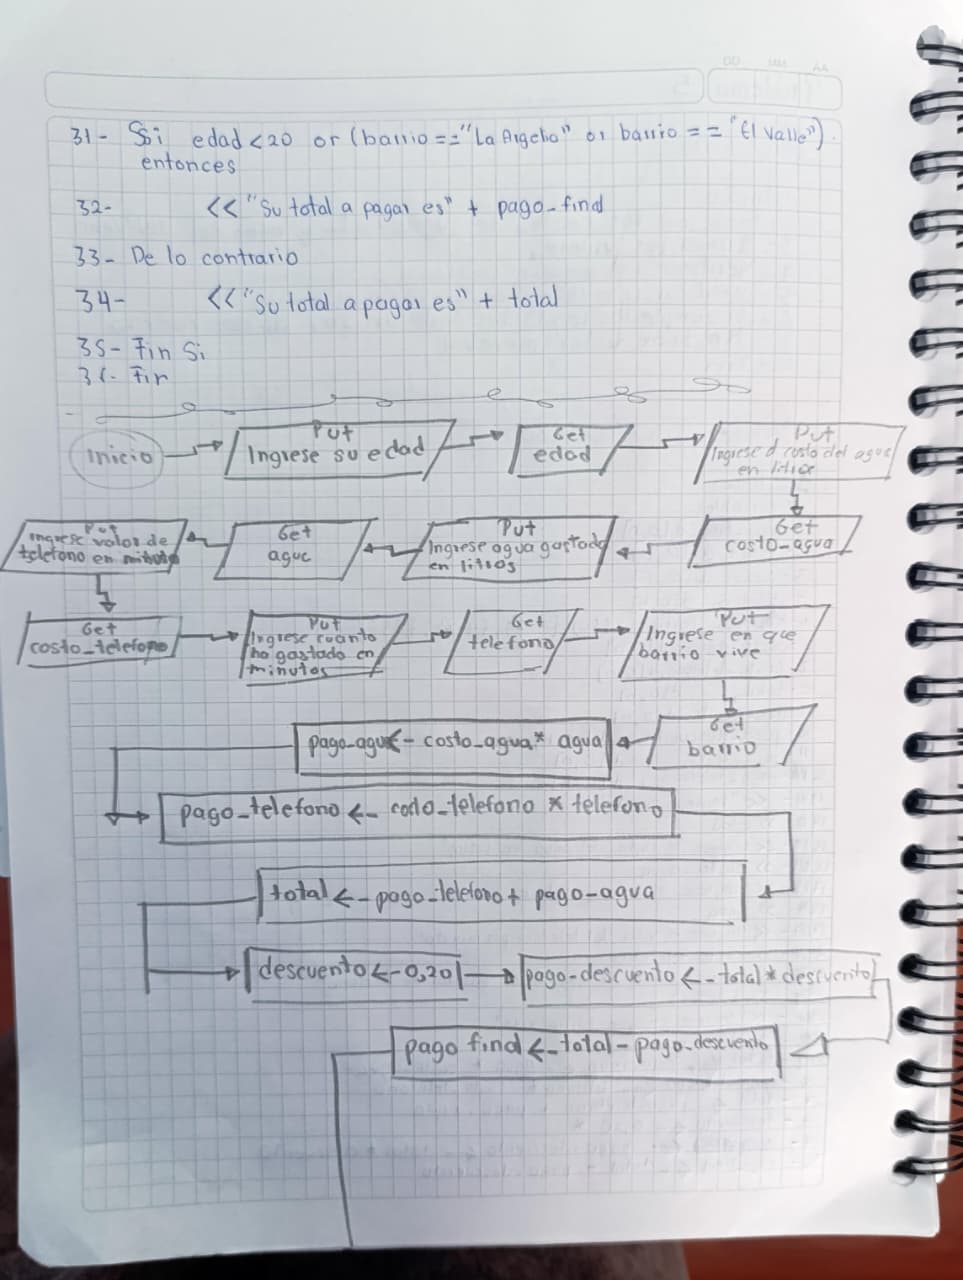 DD MM AA
31- Si edad<20 or (barrio == "La Argelia" or barrio == "El Valle")
entonces
32- << "Su total a pagar es" + pago_find
33- De lo contrario
34- << "Su total a pagar es" + total
35- Fin Si
36- Fin
Inicio
Put
Ingrese su edad
Get
edad
Put
Ingrese el costo del agua
en litros
Get
costo_agua
Put
Ingrese agua gastada
en litros
Get
agua
Put
ingrese valor de
telefono en minutos
Get
costo_telefono
Put
Ingrese cuanto
ha gastado en
minutos
Get
telefono
Put
Ingrese en que
barrio vive
Get
barrio
pago_agua<- costo_agua* agua
pago_telefono <- costo_telefono * telefono
total <- pago_telefono + pago_agua
descuento <- 0,20
pago-descuento <- total * descuento
pago find <- total - pago_descuento